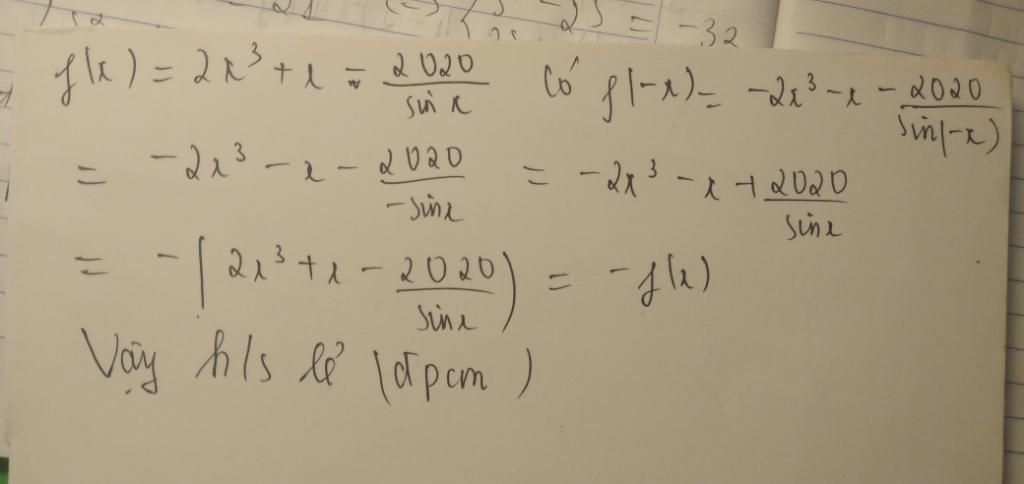 = -32
f(x) = 2x³ + x - 2020/sin x Có f(-x) = -2x³ - x - 2020/sin(-x)
= -2x³ - x - 2020/-sinx = -2x³ - x + 2020/sinx
= -(2x³ + x - 2020/sinx) = -f(x)
Vậy h/s lẻ (đpcm)